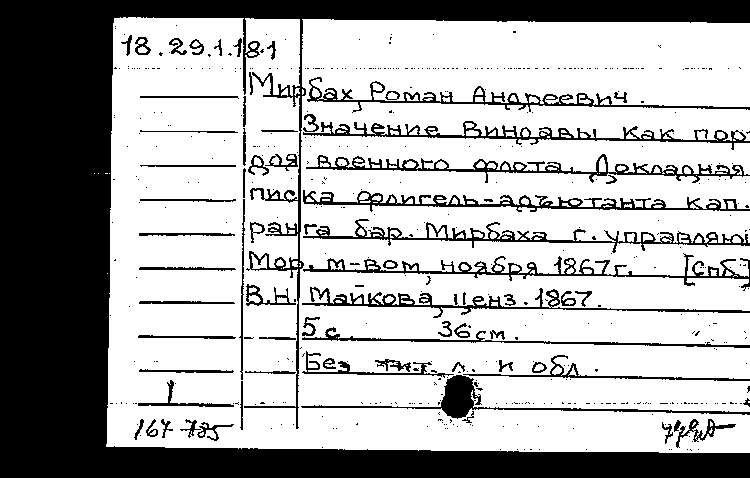 18.29.1.181
Мирбах, Роман Андреевич.
Значение Виндавы как пор
для военного флота. Докладная
писка флигель-адъютанта кап.
ранга бар. Мирбаха г. управляю
Мор. м-вом, ноября 1867г. [Спб.]
В.Н. Майкова, ценз. 1867.
5 с. 36 см.
Без тит. л. и обл.
1
167 785